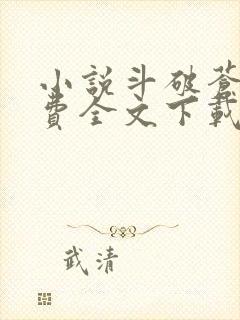 小說斗破蒼
費全文下載
武清